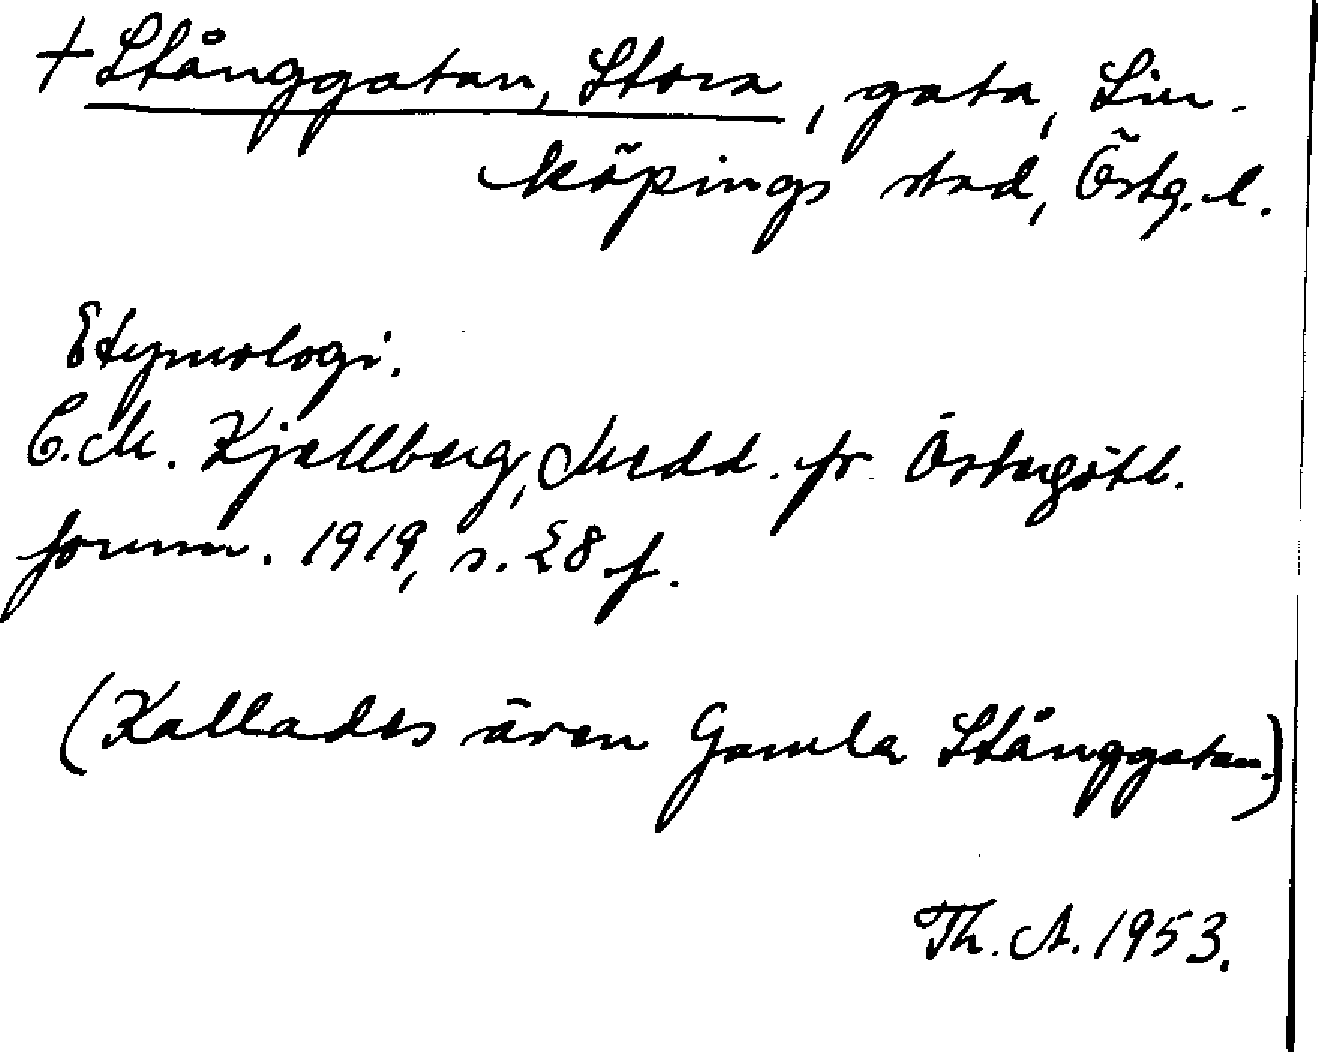 + Stånggatan, Stora, gata, Lin-
köpings stad, Östg. l.
Etymologi.
C. M. Kjellberg, Medd. fr. Östergötl.
fornm. 1919, s. 28 f.
(Kallades även Gamla Stånggatan.)
Th. A. 1953.